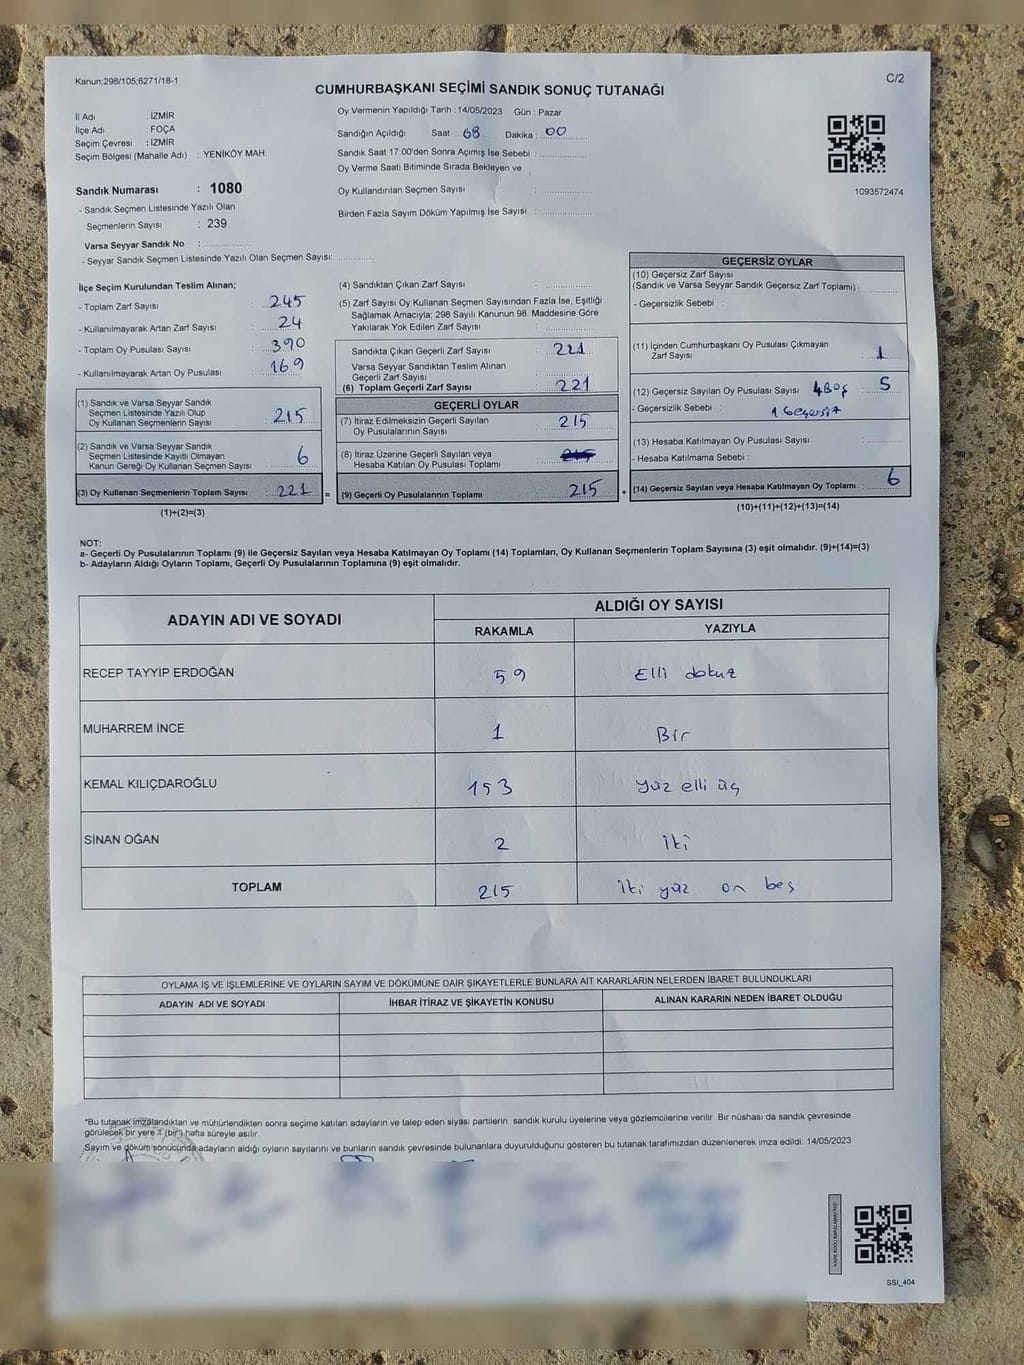 Kanun;298/105;6271/18-1
C/2
CUMHURBAŞKANI SEÇİMİ SANDIK SONUÇ TUTANAĞI
İl Adı : İZMİR
İlçe Adı : FOÇA
Seçim Çevresi : İZMİR
Seçim Bölgesi (Mahalle Adı) : YENİKÖY MAH.
Sandık Numarası : 1080
- Sandık Seçmen Listesinde Yazılı Olan
Seçmenlerin Sayısı : 239
Varsa Seyyar Sandık No :
- Seyyar Sandık Seçmen Listesinde Yazılı Olan Seçmen Sayısı:
Oy Vermenin Yapıldığı Tarih : 14/05/2023 Gün : Pazar
Sandığın Açıldığı Saat : 08 Dakika : 00
Sandık Saat 17:00'den Sonra Açımış İse Sebebi :
Oy Verme Saati Bitiminde Sırada Bekleyen ve
Oy Kullandırılan Seçmen Sayısı :
Birden Fazla Sayım Döküm Yapılmış İse Sayısı :
1093572474
İlçe Seçim Kurulundan Teslim Alınan;
- Toplam Zarf Sayısı : 245
- Kullanılmayarak Artan Zarf Sayısı : 24
- Toplam Oy Pusulası Sayısı : 390
- Kullanılmayarak Artan Oy Pusulası : 169
(1) Sandık ve Varsa Seyyar Sandık
Seçmen Listesinde Yazılı Olup
Oy Kullanan Seçmenlerin Sayısı : 215
(2) Sandık ve Varsa Seyyar Sandık
Seçmen Listesinde Kayıtlı Olmayan
Kanun Gereği Oy Kullanan Seçmen Sayısı : 6
(3) Oy Kullanan Seçmenlerin Toplam Sayısı : 221 =
(1)+(2)=(3)
(4) Sandıktan Çıkan Zarf Sayısı :
(5) Zarf Sayısı Oy Kullanan Seçmen Sayısından Fazla İse, Eşitliği
Sağlamak Amacıyla; 298 Sayılı Kanunun 98. Maddesine Göre
Yakılarak Yok Edilen Zarf Sayısı :
Sandıkta Çıkan Geçerli Zarf Sayısı : 221
Varsa Seyyar Sandıktan Teslim Alınan
Geçerli Zarf Sayısı :
(6) Toplam Geçerli Zarf Sayısı : 221
GEÇERLİ OYLAR
(7) İtiraz Edilmeksizin Geçerli Sayılan
Oy Pusulalarının Sayısı : 215
(8) İtiraz Üzerine Geçerli Sayılan ve
Hesaba Katılan Oy Pusulası Toplamı : 215
(9) Geçerli Oy Pusulalarının Toplamı : 215 +
GEÇERSİZ OYLAR
(10) Geçersiz Zarf Sayısı
(Sandık ve Varsa Seyyar Sandık Geçersiz Zarf Toplamı) :
- Geçersizlik Sebebi :
(11) İçinden Cumhurbaşkanı Oy Pusulası Çıkmayan
Zarf Sayısı : 1
(12) Geçersiz Sayılan Oy Pusulası Sayısı : 4 Boş 5
- Geçersizlik Sebebi : 1 Geçersiz
(13) Hesaba Katılmayan Oy Pusulası Sayısı :
- Hesaba Katılmama Sebebi :
(14) Geçersiz Sayılan veya Hesaba Katılmayan Oy Toplamı : 6
(10)+(11)+(12)+(13)=(14)
NOT:
a- Geçerli Oy Pusulalarının Toplamı (9) ile Geçersiz Sayılan veya Hesaba Katılmayan Oy Toplamı (14) Toplamları, Oy Kullanan Seçmenlerin Toplam Sayısına (3) eşit olmalıdır. (9)+(14)=(3)
b- Adayların Aldığı Oyların Toplamı, Geçerli Oy Pusulalarının Toplamına (9) eşit olmalıdır.
ADAYIN ADI VE SOYADI
ALDIĞI OY SAYISI
RAKAMLA YAZIYLA
RECEP TAYYİP ERDOĞAN 59 Elli dokuz
MUHARREM İNCE 1 Bir
KEMAL KILIÇDAROĞLU 153 yüz elli üç
SİNAN OĞAN 2 iki
TOPLAM 215 iki yüz on beş
OYLAMA İŞ VE İŞLEMLERİNE VE OYLARIN SAYIM VE DÖKÜMÜNE DAİR ŞİKAYETLERLE BUNLARA AİT KARARLARIN NELERDEN İBARET BULUNDUKLARI
ADAYIN ADI VE SOYADI İHBAR İTİRAZ VE ŞİKAYETİN KONUSU ALINAN KARARIN NEDEN İBARET OLDUĞU
*Bu tutanak imzalandıktan ve mühürlendikten sonra seçime katılan adayların ve talep eden siyasi partilerin sandık kurulu üyelerine veya gözlemcilerine verilir. Bir nüshası da sandık çevresinde
görülecek bir yere 1 (bir) hafta süreyle asılır.
Sayım ve döküm sonucunda adayların aldığı oyların sayılarını ve bunların sandık çevresinde bulunanlara duyurulduğunu gösteren bu tutanak tarafımızdan düzenlenerek imza edildi. 14/05/2023
SSI_404